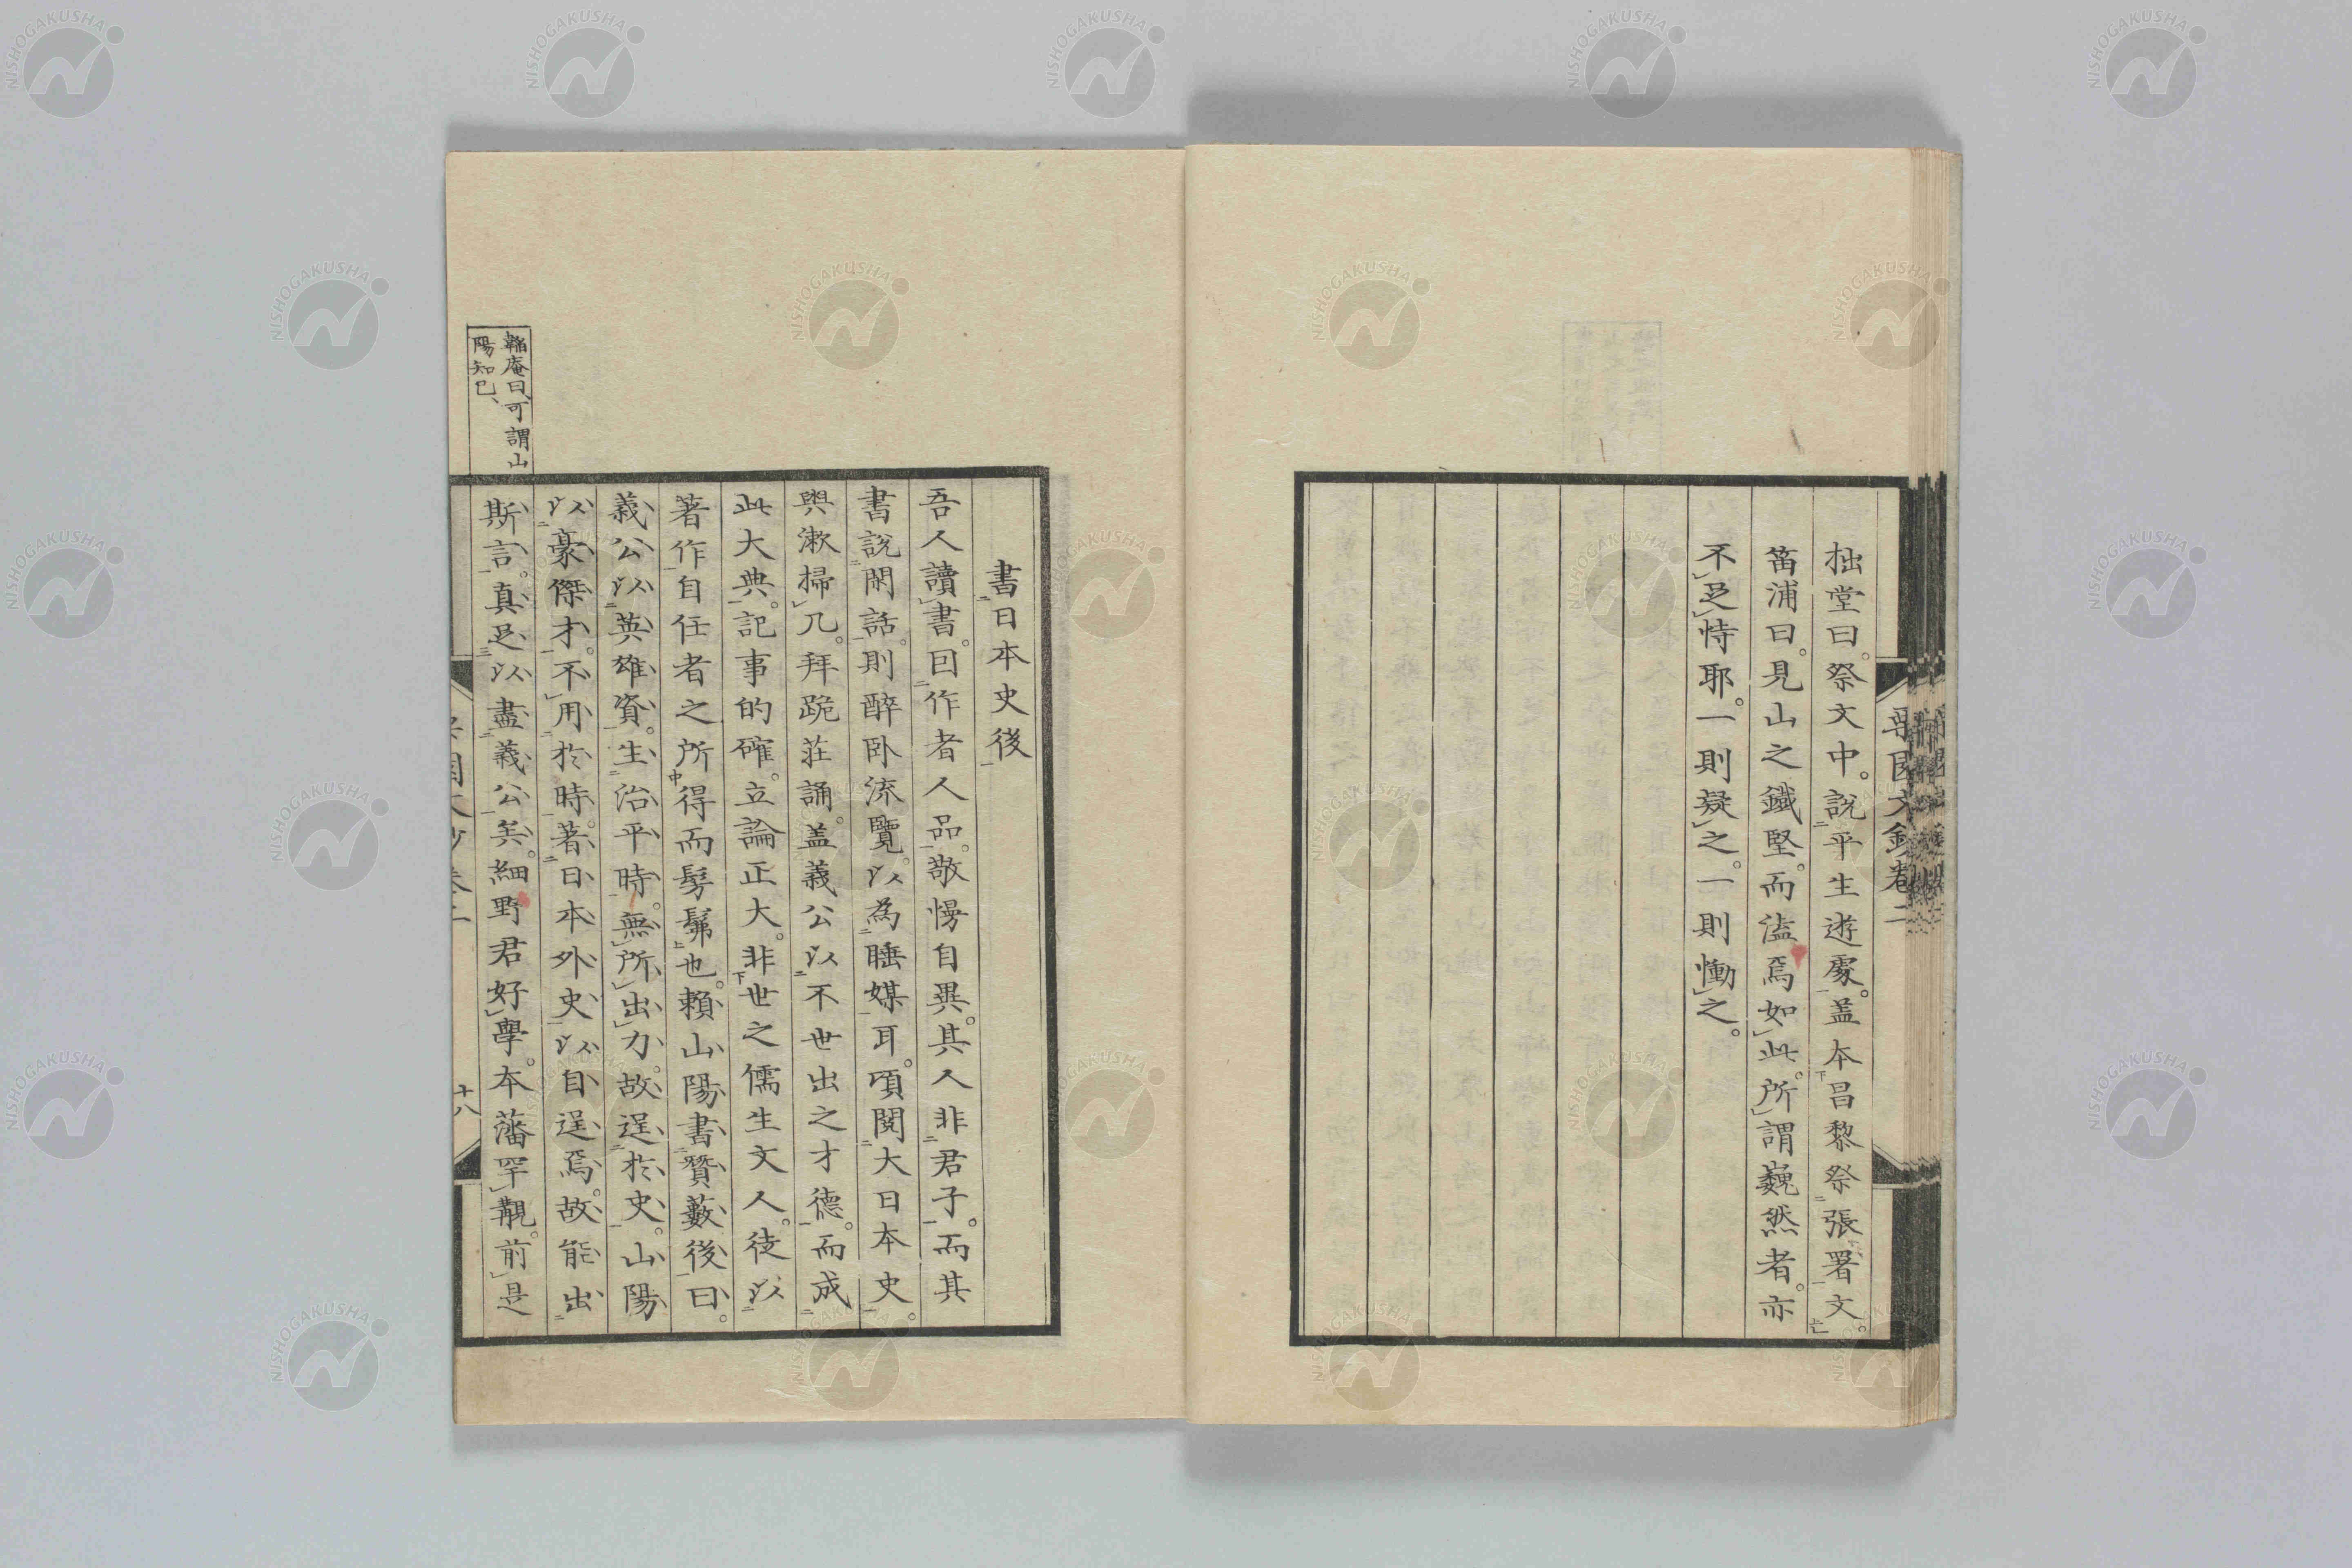 拙堂曰。祭文中。説平生遊處。盖本昌黎祭張署文。
笛浦曰。見山之鐵堅。而溘焉如此。所謂巍然者。亦
不足恃耶。一則疑之。一則慟之。
書日本史後
吾人讀書。因作者人品。敬慢自異。其人非君子。而其
書説閑話。則醉卧流覽。以為睡媒耳。頃閲大日本史。
與漱掃几。拜跪莊誦。盖義公以不世出之才德。而成
此大典。記事的確。立論正大。非世之儒生文人。徒以
著作自任者之所得而髣髴也。賴山陽書贊藪後曰。
義公以英雄資。生治平時。無所出力。故逞於史。山陽
以豪傑才。不用於時。著日本外史。以自逞焉。故能出
斯言。真足以盡義公矣。細野君好學。本藩罕覯。前是
韜庵曰、可謂山
陽知己、
十八
NISHOGAKUSHA